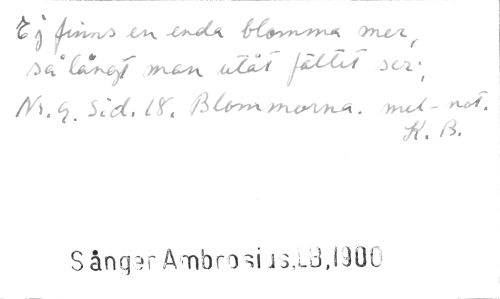 Ej finns en enda blomma mer,
så långt man utåt fältet ser;
Nr. 9. Sid. 18. Blommorna. mel-not.
K. B.
Sånger Ambrosius, LB, 1900